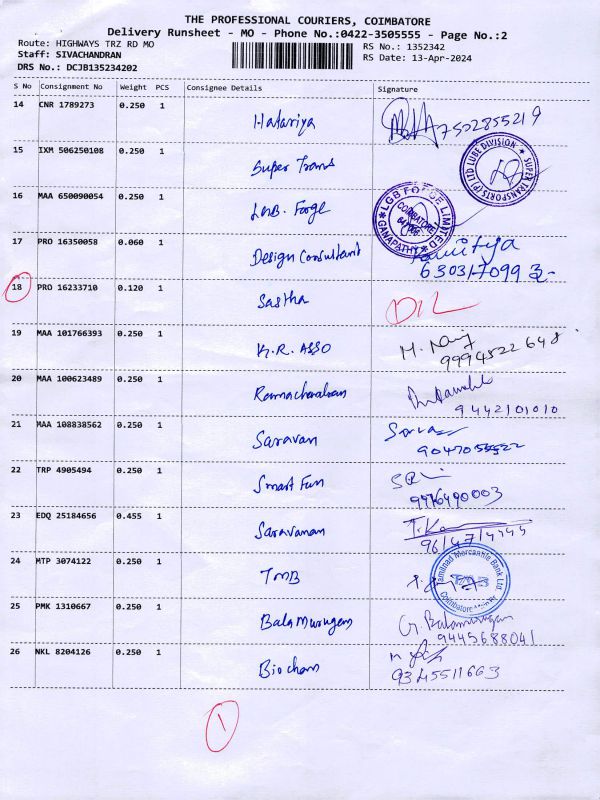 THE PROFESSIONAL COURIERS, COIMBATORE
Delivery Runsheet - MO - Phone No.:0422-3505555 - Page No.:2
Route: HIGHWAYS TRZ RD MO RS No.: 1352342
Staff: SIVACHANDRAN RS Date: 13-Apr-2024
DRS No.: DCJB135234202
S No Consignment No Weight PCS Consignee Details Signature
14 CNR 1789273 0.250 1 Hatariya 7502855219
15 IXM 506250108 0.250 1 Super Trans
SUPER TRANSPORTS (P) LTD LUBE DIVISION
16 MAA 650090054 0.250 1 LGB. Forge
LGB FORGE LIMITED GANAPATHY COIMBATORE
17 PRO 16350058 0.060 1 Design Consultant
18 PRO 16233710 0.120 1 Sastha D/L
19 MAA 101766393 0.250 1 K.R. ASSO
9994522648
20 MAA 100623489 0.250 1 Ramachandran
9442101010
21 MAA 108838562 0.250 1 Saravan
22 TRP 4905494 0.250 1 Smart Fun
9976490003
23 EDQ 25184656 0.455 1 Saravanan
24 MTP 3074122 0.250 1 TMB
Tamilnad Mercantile Bank Ltd
25 PMK 1310667 0.250 1 Balamurugan G. Balamurugan
9445688041
26 NKL 8204126 0.250 1 Biochem
9345511663
1